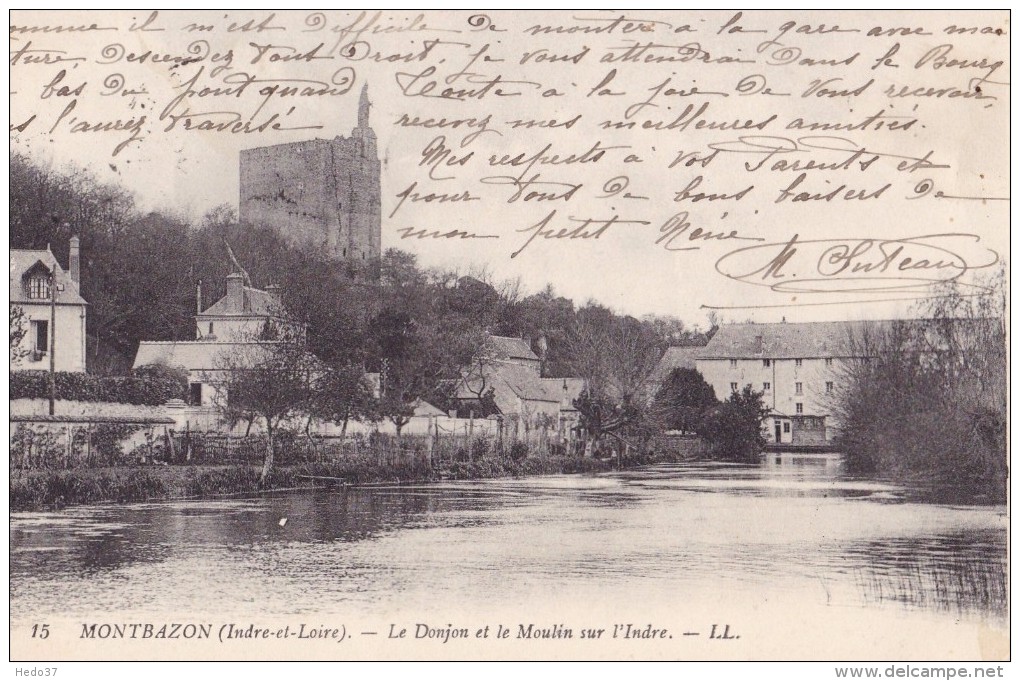 Comme il m'est Difficile De monter à la gare avec ma
ture, Descendez tout Droit, je vous attendrai Dans le Bourg
bas Du pont quand
l'aurez traversé
Toute à la joie De Vous recevoir,
recevez mes meilleures amitiés.
Mes respects à vos Parents et
pour tous De bons baisers De
mon petit Réné
M. Suteau
15 MONTBAZON (Indre-et-Loire). — Le Donjon et le Moulin sur l'Indre. — LL.
Hedo37
www.delcampe.net